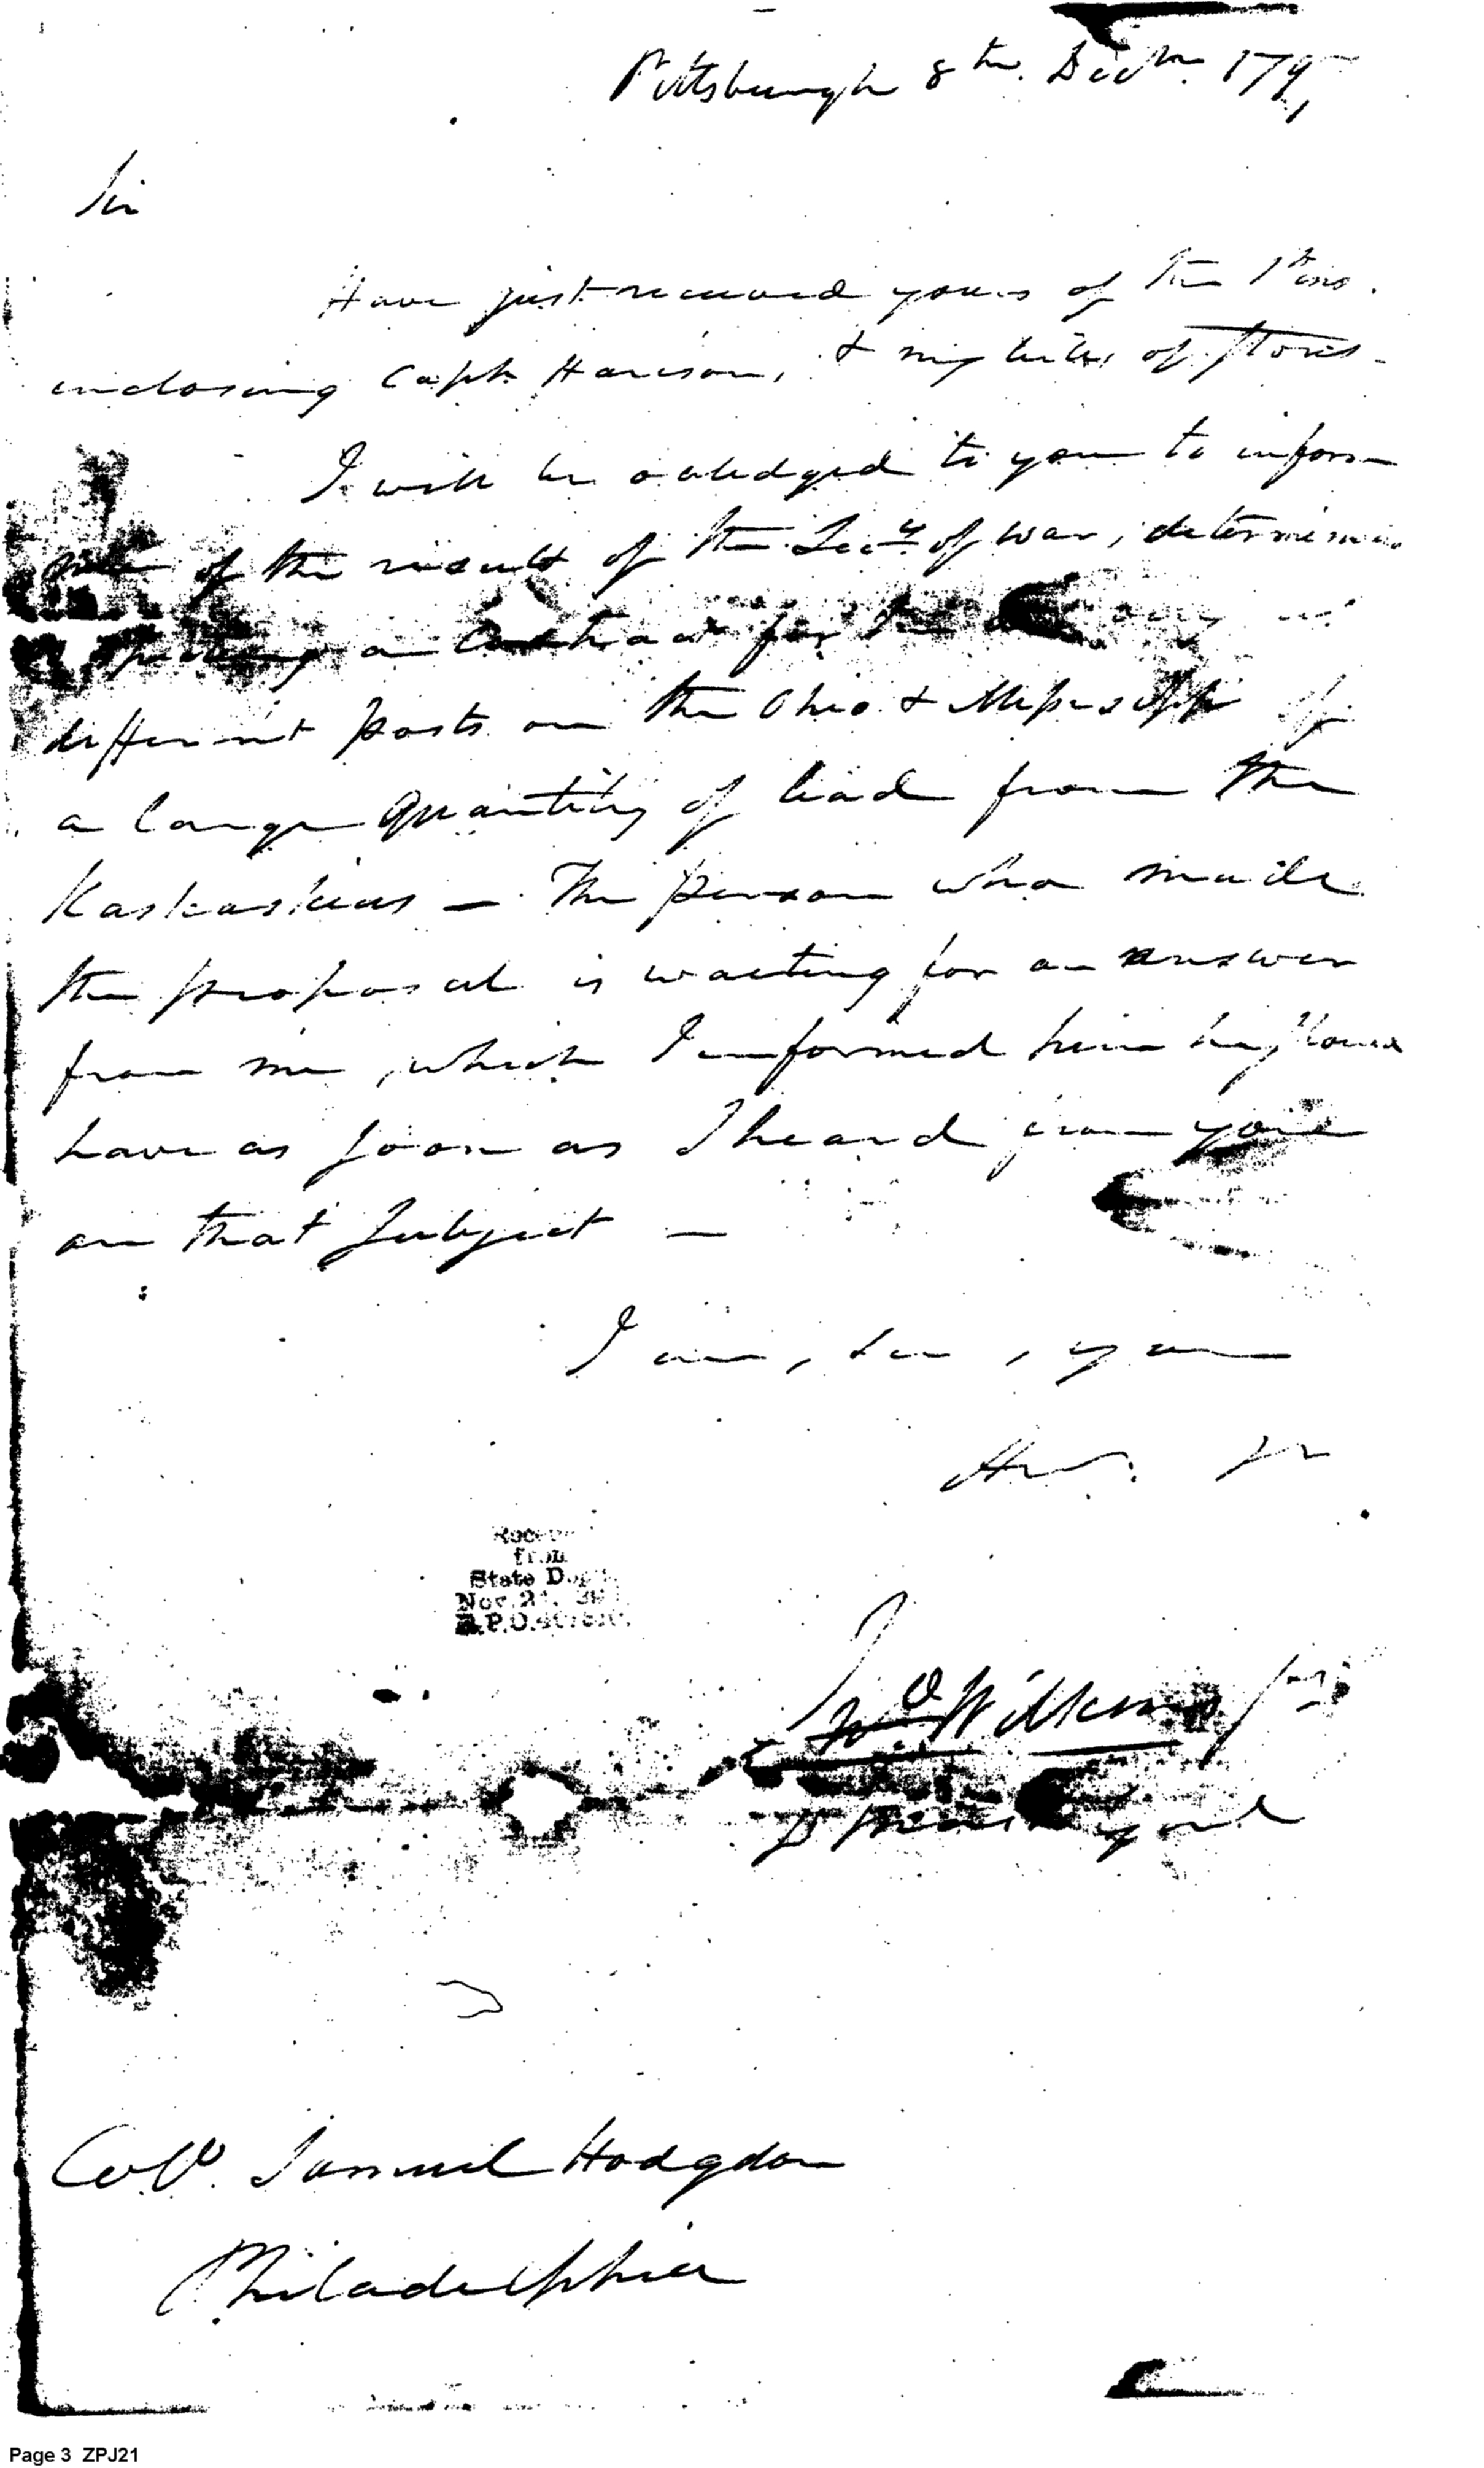 Pittsburgh 8th. Decbr. 179
Sir
Have just received yours of the 1st ins.
inclosing Capt. Harison, & my bills of Stores -
I will be obledged to you to inform
me of the result of the Secy. of war,
a Contract for the
different posts on the Ohio & Missisippi of
a large Quantity of lead from the
Kaskaskias — The person who made
the proposal is waiting for an answer
from me, which I informed him he should
have as soon as I heard from you
on that Subject —
I am, Sir, your
from
State
Nov. 2
Jno Wilkins Jr
Colo. Samuel Hodgdon
Philadelphia
Page 3 ZPJ21